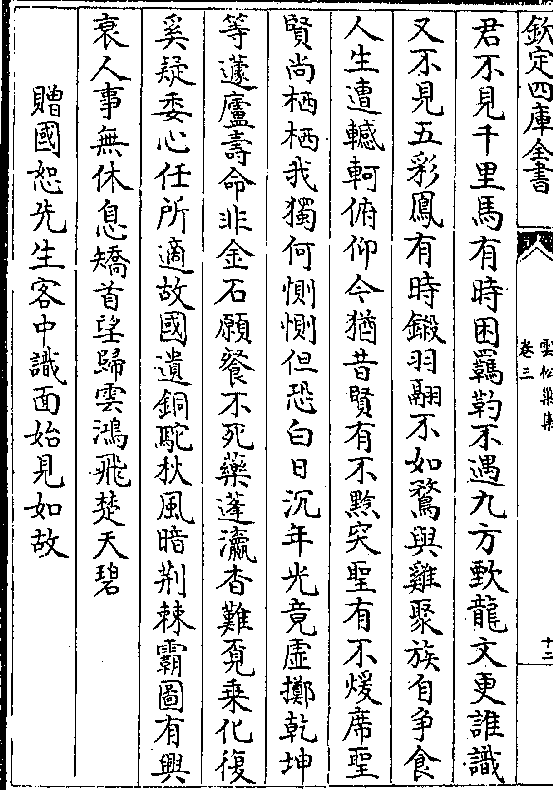 欽定四庫全書
雲松巢集
卷三
十二
君不見千里馬有時困羈靮不遇九方歅龍文更誰識
又不見五彩鳳有時鎩羽翮不如鶩與雞聚族自爭食
人生遭轗軻俯仰今猶昔賢有不黔突聖有不煖席聖
賢尚栖栖我獨何惻惻但恐白日沉年光竟虛擲乾坤
等蘧廬壽命非金石願餐不死藥蓬瀛杳難覔乘化復
奚疑委心任所適故國遺銅駝秋風暗荆棘霸圖有興
衰人事無休息矯首望歸雲鴻飛楚天碧
贈國恕先生客中識面始見如故